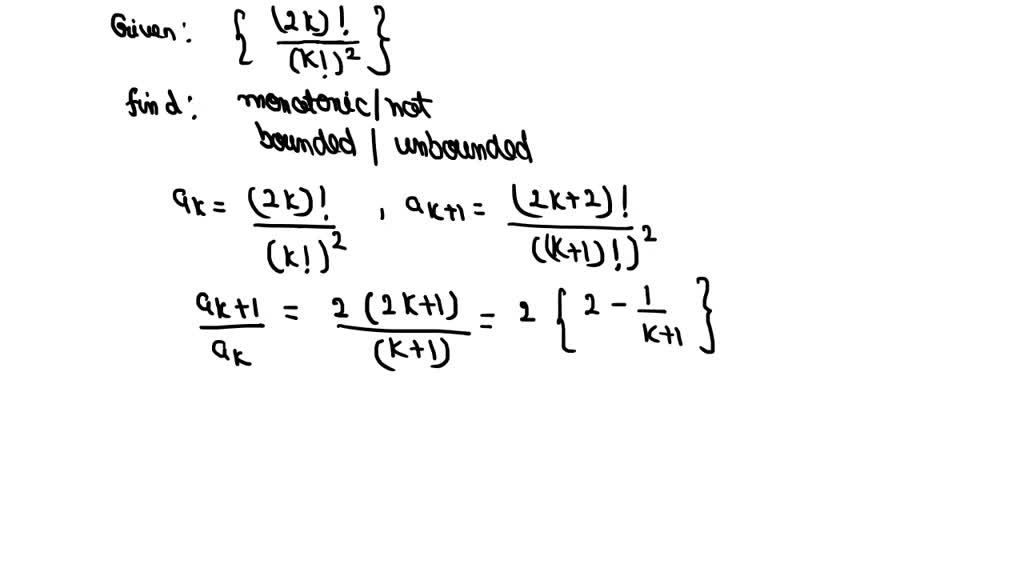 Given: { (2k)! / (k!)² }
find: monotonic/not
bounded | unbounded
aₖ = (2k)! / (k!)² , aₖ₊₁ = (2k+2)! / ((k+1)!)²
aₖ₊₁ / aₖ = 2(2k+1) / (k+1) = 2 { 2 - 1 / k+1 }